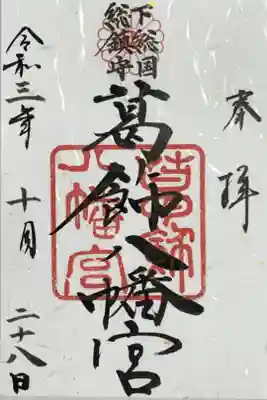 奉拝
下総国
総鎮守
葛飾八幡宮
葛飾
八幡宮
令和三年 十月 二十八日